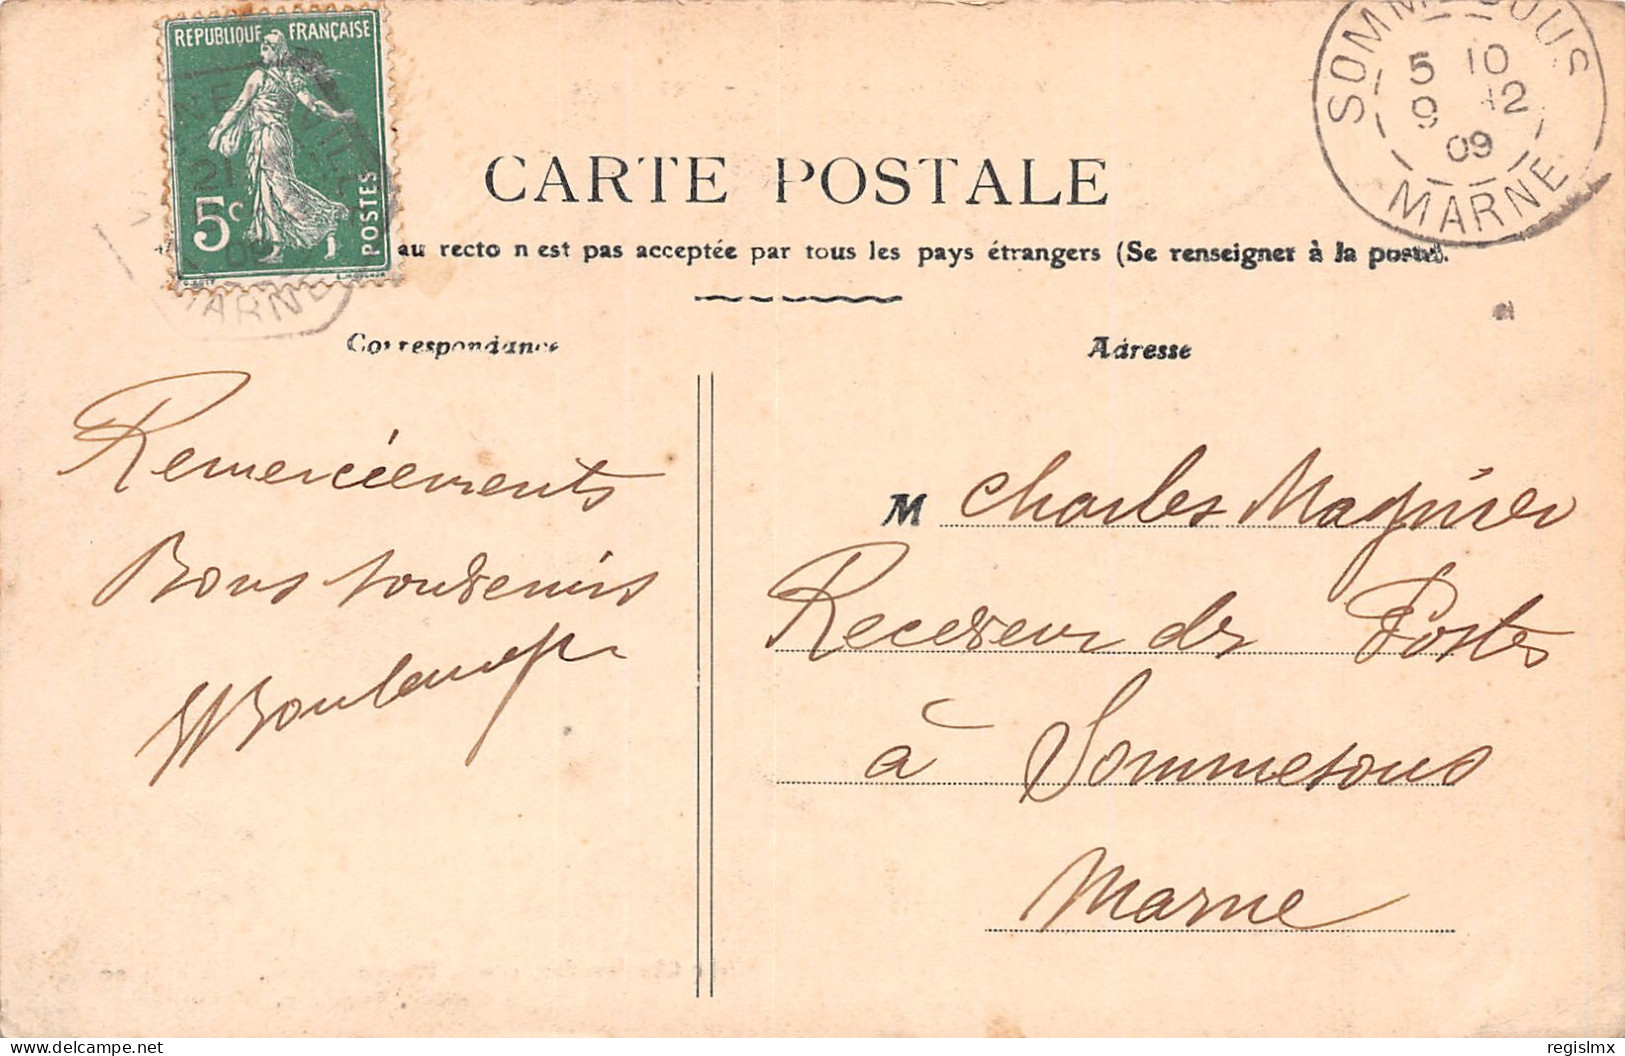 REPUBLIQUE FRANÇAISE
5c
POSTES
21
MARNE
SOMMESOUS
5 10
9 12
09
MARNE
CARTE POSTALE
au recto n'est pas acceptée par tous les pays étrangers (Se renseigner à la poste).
Correspondance
Adresse
Remerciéements
Bons souvenirs
M Charles Magnier
Receveur des Postes
à Sommesous
Marne
delcampe.net
regislmx